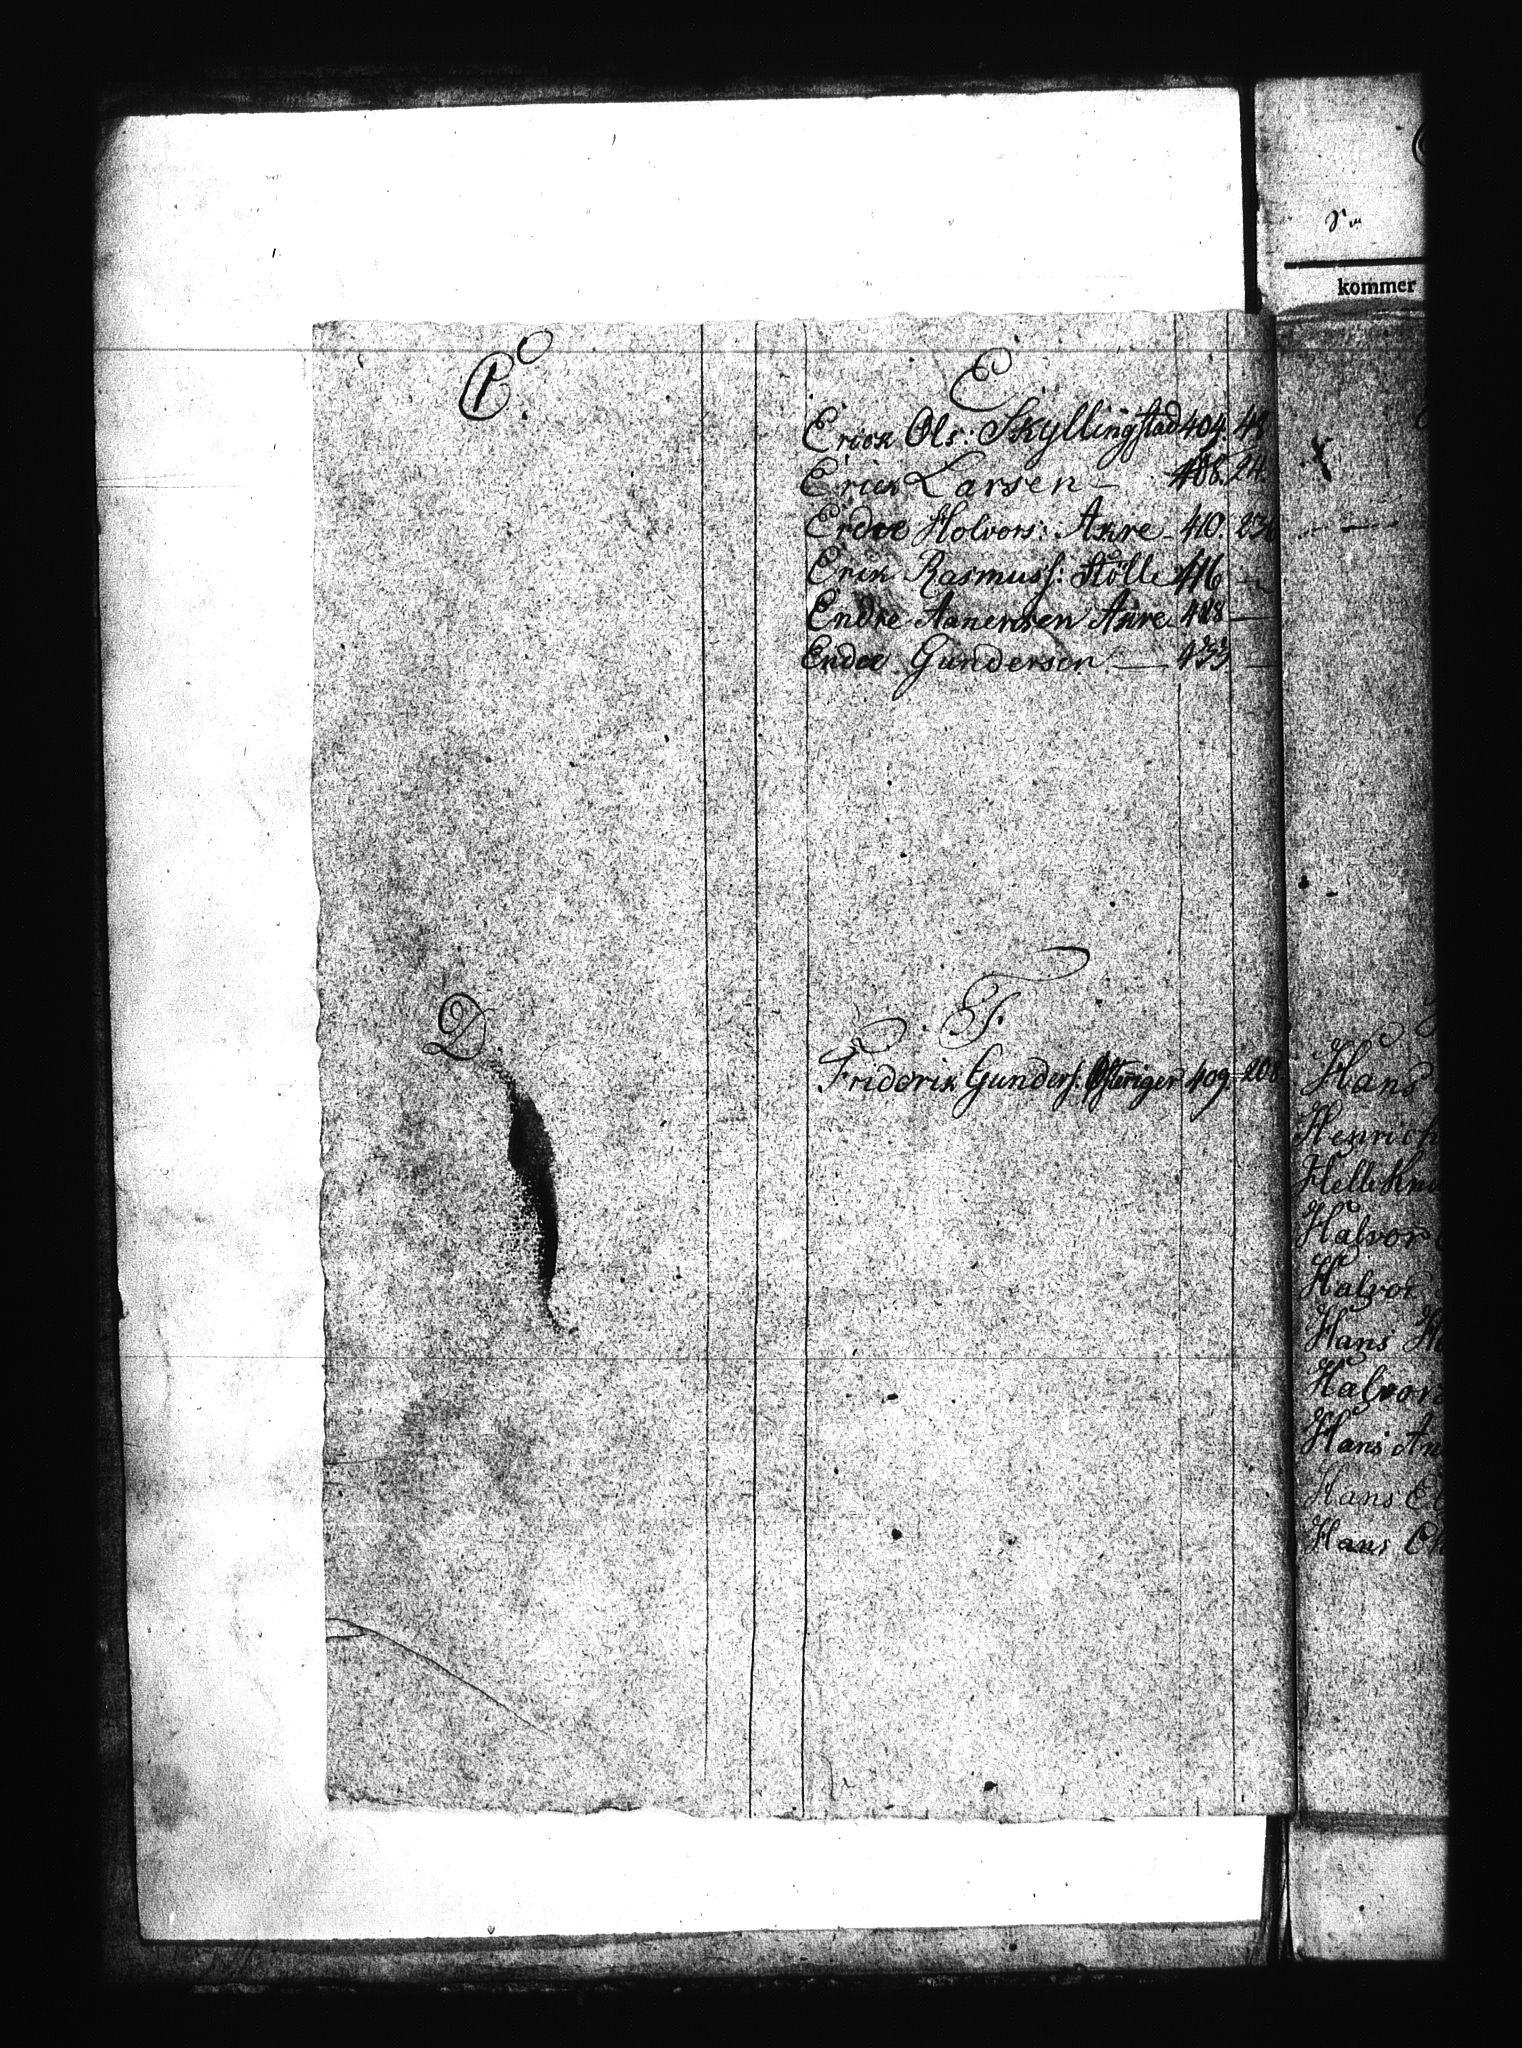 C.
D.
E
Erick Ols: Skyllingstad 404. 48
Erick Larsen — 408. 24.
Endre Holvors: Akre - 410. 236
Erik Rasmuss: Stölle 416 —
Endre Aanensen Akre 418 —
Endre Gundersen — 433 —
F.
Friderik Gunders. 409. 208
kommer
Hans
Henrich
Helle Knu
Halvor
Halvor
Hans Ha
Halvor
Hans An
Hans E
Hans Ch